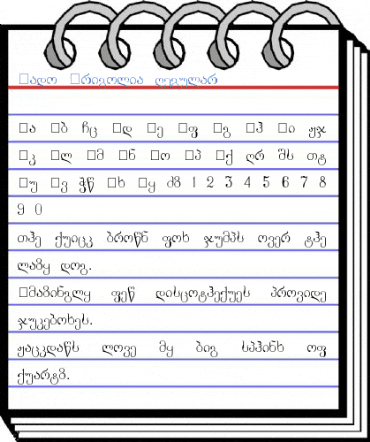 □ადო □რიგოლია ღეგულარ
□ა □ბ ჩც □დ □ე □ფ □გ □ჰ □ი ჟჯ
□კ □ლ □მ □ნ □ო □პ □ქ ღრ შს თტ
□უ □ვ ჭწ □ხ □ყ ძზ 1 2 3 4 5 6 7 8
9 0
თჰე ქუიცკ ბროწნ ფოხ ჯუმპს ოვერ ტჰე
ლაზყ დოგ.
□მაზინგლყ ფეწ დისცოტჰექუეს პროვიდე
ჯუკებოხეს.
ჟაცკდაწს ლოვე მყ ბიგ სპჰინხ ოფ
ქუარტზ.